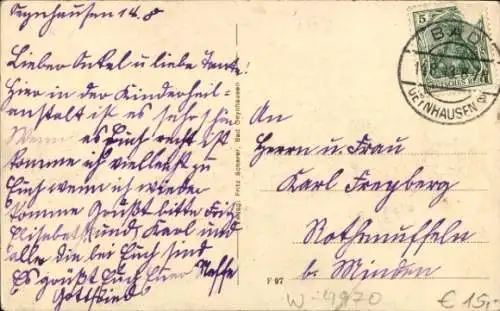 Oeynhausen 14. 8
Lieber Onkel u liebe Tante!
Hier in der Kinderheil-
anstalt ist es sehr schön
Wenn es Euch recht ist
komme ich vielleicht zu
Euch wenn ich wieder
komme Grüßt bitte Fritz
Elisabet und Karl und
alle die bei Euch sind
Es grüßt Euch Euer Neffe
Gottfried
Verlag: Fritz Scherer, Bad Oeynhausen
5
BAD
OEYNHAUSEN
An
Herrn u. Frau
Karl Freyberg
Rothenuffeln
b. Minden
F 97
W-4970
€ 15,-